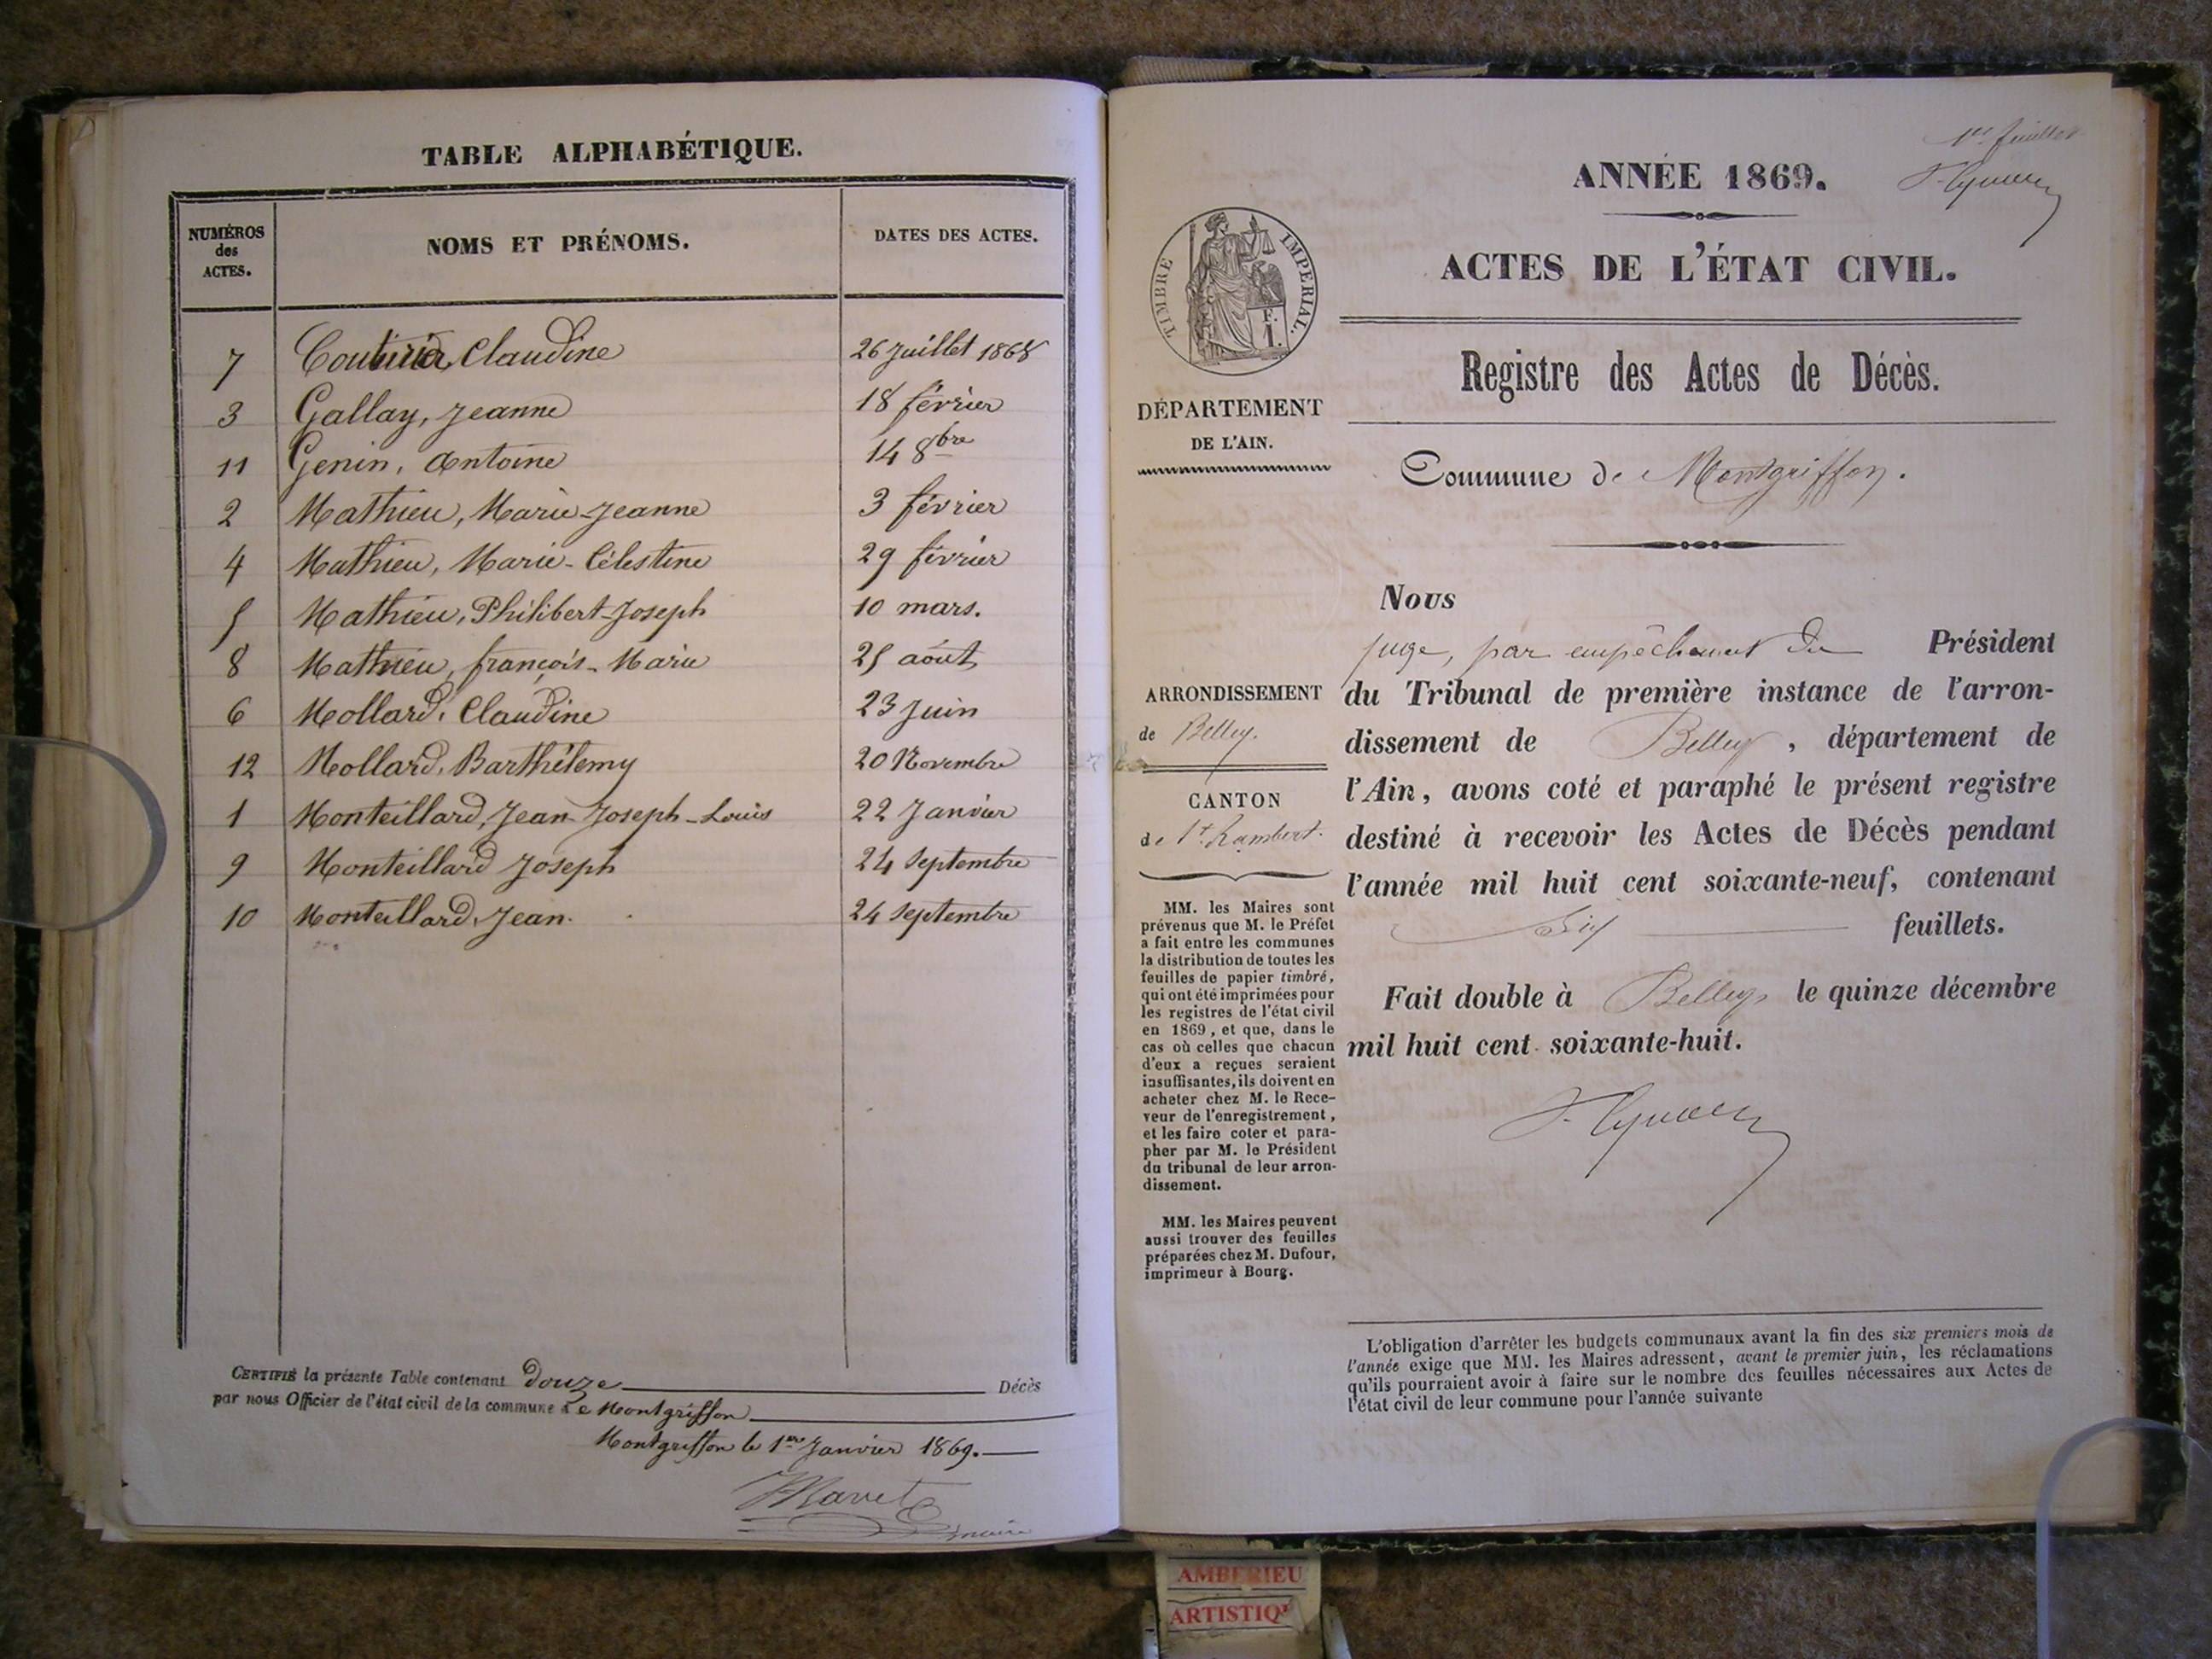 TABLE ALPHABÉTIQUE.
NUMÉROS des ACTES.
NOMS ET PRÉNOMS.
DATES DES ACTES.
7 Couturier, Claudine 26 Juillet 1868
3 Gallay, Jeanne 18 février
11 Genin, Antoine 14 8bre
2 Mathieu, Marie-Jeanne 3 février
4 Mathieu, Marie-Célestine 29 février
5 Mathieu, Philibert-Joseph 10 mars.
8 Mathieu, françois-Marie 25 août
6 Mollard, Claudine 23 Juin
12 Mollard, Barthélemy 20 Novembre
1 Monteillard, Jean-Joseph-Louis 22 Janvier
9 Monteillard Joseph 24 Septembre
10 Monteillard, Jean. 24 Septembre
CERTIFIÉ la présente Table contenant douze Décès
par nous Officier de l'état civil de la commune de Montgriffon
Montgriffon le 1er Janvier 1869.
maire
1er feuillet
ANNÉE 1869.
ACTES DE L'ÉTAT CIVIL.
TIMBRE IMPERIAL.
F.
1.
Registre des Actes de Décès.
DÉPARTEMENT
DE L'AIN.
Commune de Montgriffon.
ARRONDISSEMENT
de Belley.
CANTON
de St. Rambert.
MM. les Maires sont
prévenus que M. le Préfet
a fait entre les communes
la distribution de toutes les
feuilles de papier timbré,
qui ont été imprimées pour
les registres de l'état civil
en 1869, et que, dans le
cas où celles que chacun
d'eux a reçues seraient
insuffisantes, ils doivent en
acheter chez M. le Rece-
veur de l'enregistrement,
et les faire coter et para-
pher par M. le Président
du tribunal de leur arron-
dissement.
MM. les Maires peuvent
aussi trouver des feuilles
préparées chez M. Dufour,
imprimeur à Bourg.
Nous
juge, par empêchement du Président
du Tribunal de première instance de l'arron-
dissement de Belley, département de
l'Ain, avons coté et paraphé le présent registre
destiné à recevoir les Actes de Décès pendant
l'année mil huit cent soixante-neuf, contenant
feuillets.
Fait double à Belley le quinze décembre
mil huit cent soixante-huit.
L'obligation d'arrêter les budgets communaux avant la fin des six premiers mois de
l'année exige que MM. les Maires adressent, avant le premier juin, les réclamations
qu'ils pourraient avoir à faire sur le nombre des feuilles nécessaires aux Actes de
l'état civil de leur commune pour l'année suivante
AMBERIEU
ARTISTIQ